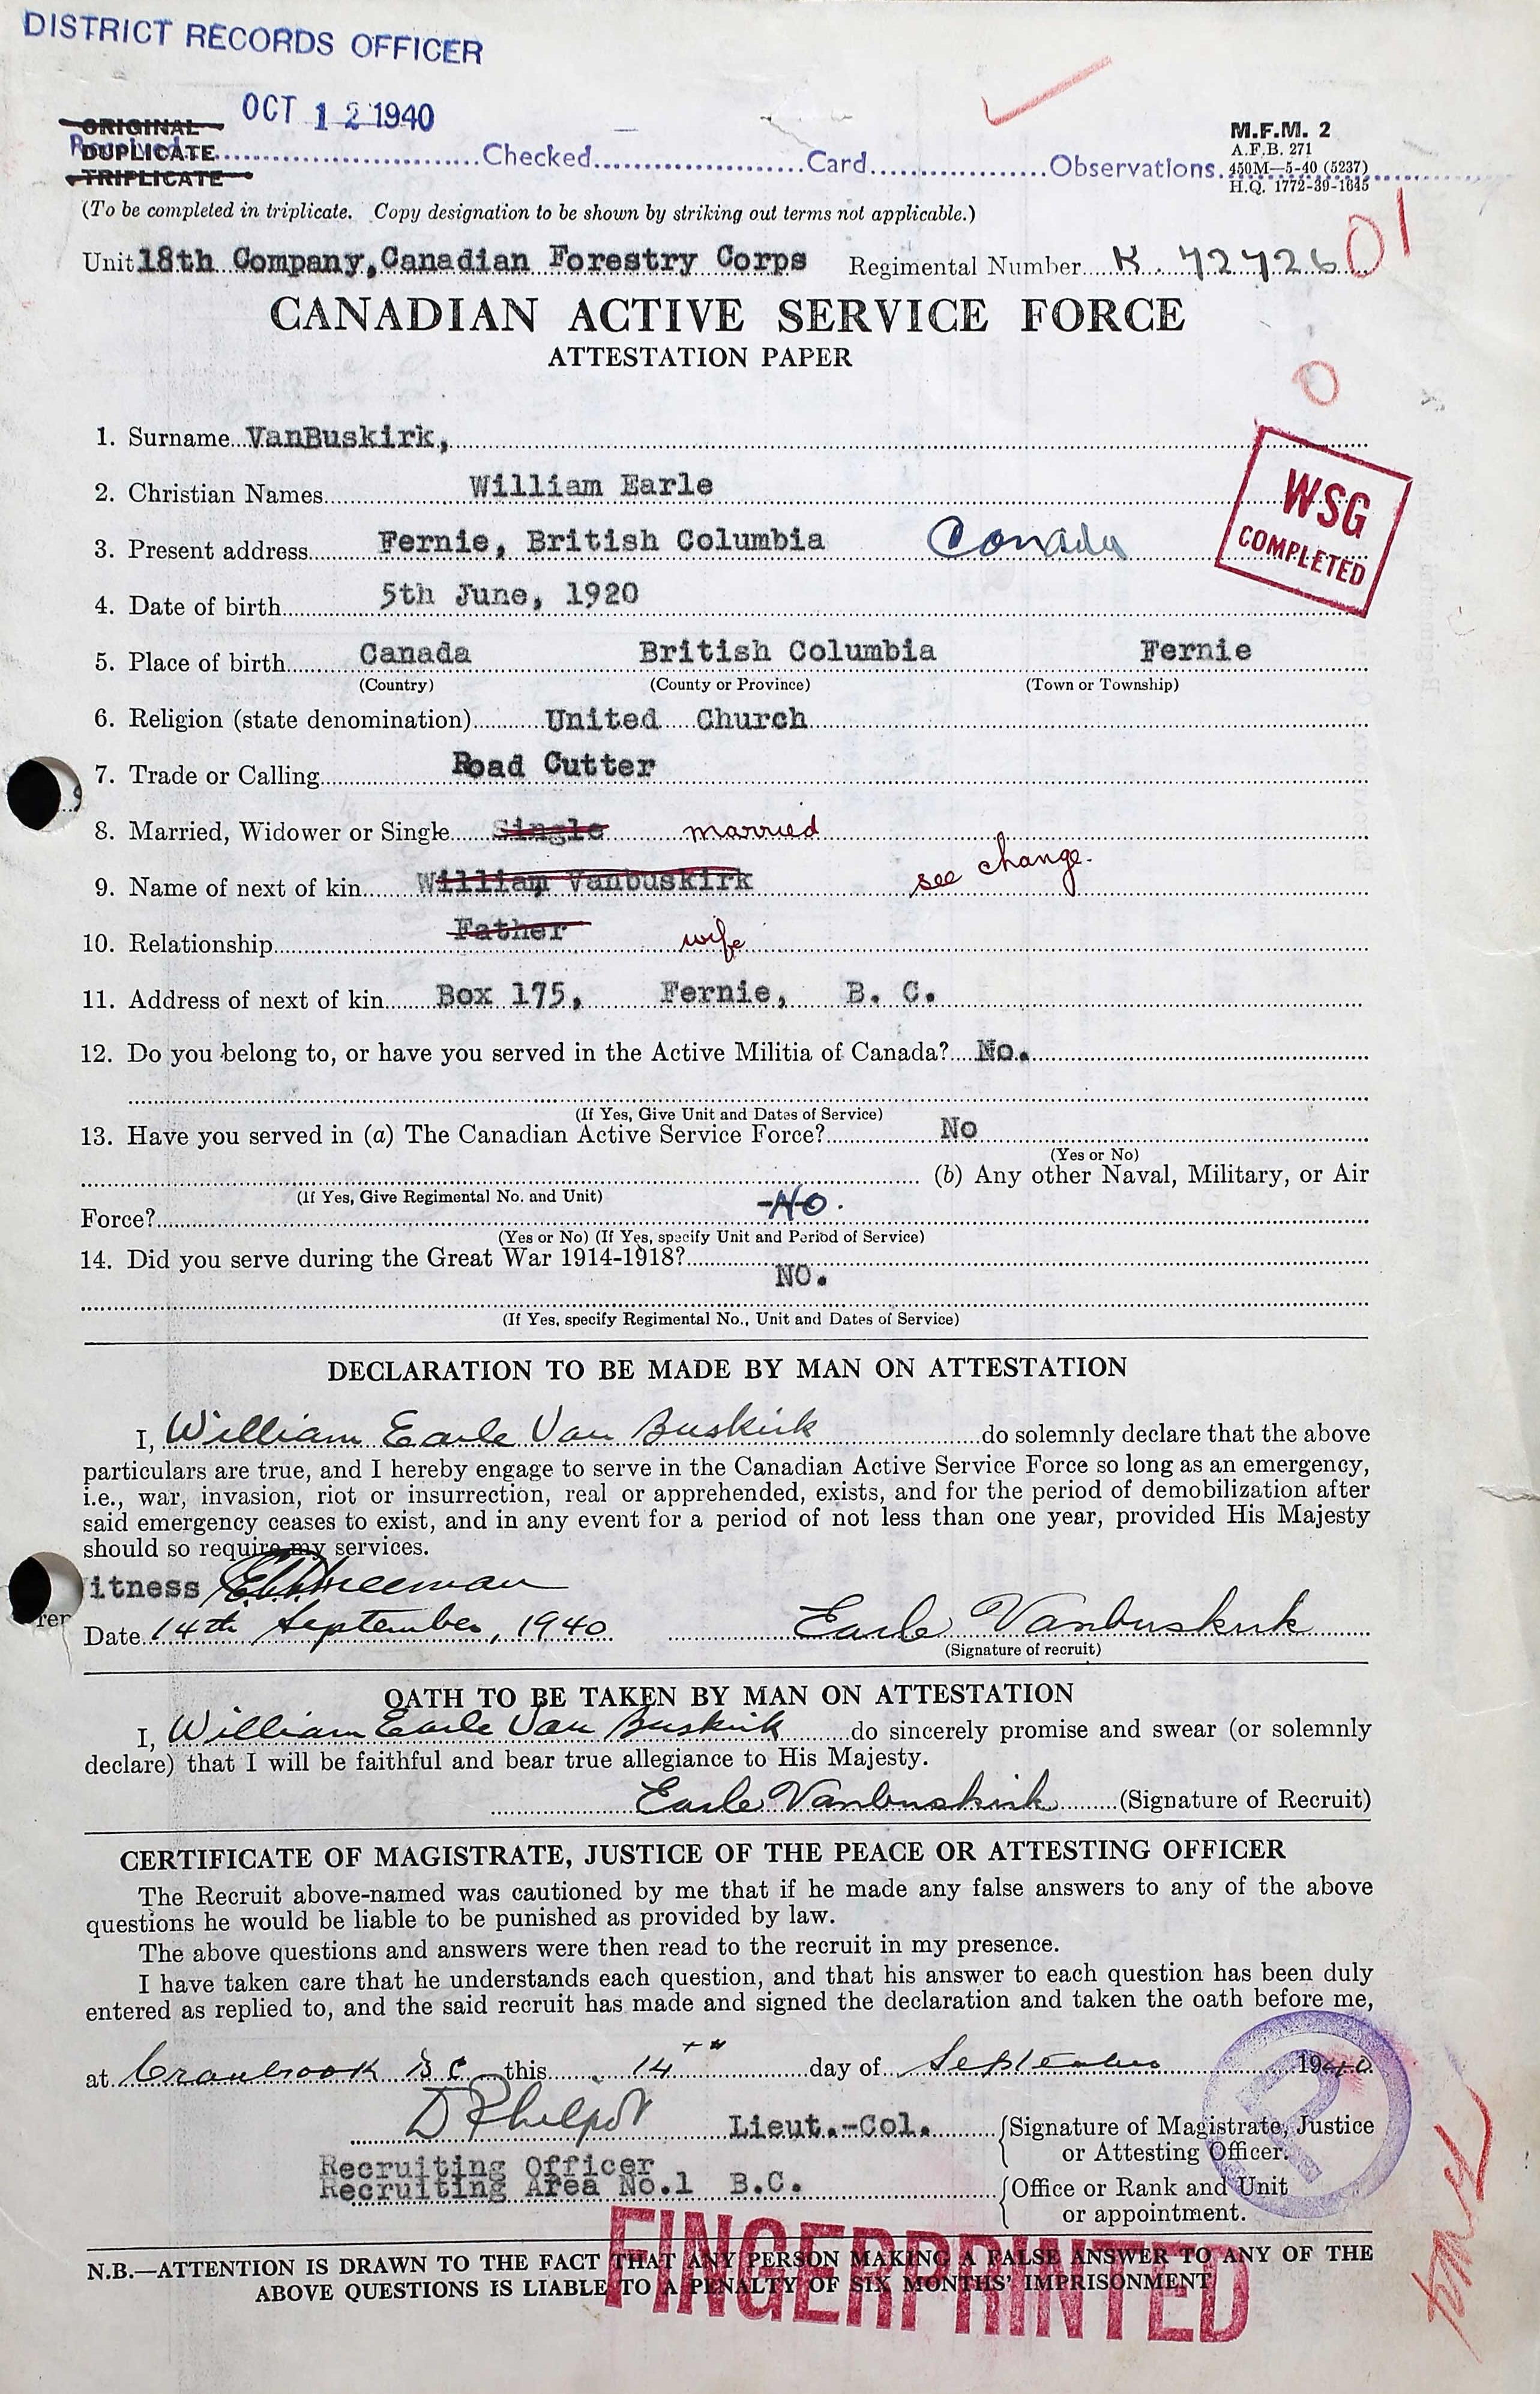 DISTRICT RECORDS OFFICER
OCT 12 1940
ORIGINAL
DUPLICATE
Received..........Checked..........Card..........Observations..........
TRIPLICATE
M.F.M. 2
A.F.B. 271
450M—5-40 (5237)
H.Q. 1772-39-1645
(To be completed in triplicate. Copy designation to be shown by striking out terms not applicable.)
Unit 18th Company, Canadian Forestry Corps Regimental Number K. 72726 01
CANADIAN ACTIVE SERVICE FORCE
ATTESTATION PAPER
0
1. Surname VanBuskirk,
WSG
COMPLETED
2. Christian Names William Earle
3. Present address Fernie, British Columbia Canada
4. Date of birth 5th June, 1920
5. Place of birth Canada British Columbia Fernie
(Country) (County or Province) (Town or Township)
6. Religion (state denomination) United Church
7. Trade or Calling Road Cutter
8. Married, Widower or Single Single married
9. Name of next of kin William Vanbuskirk see change.
10. Relationship Father wife
11. Address of next of kin Box 175, Fernie, B. C.
12. Do you belong to, or have you served in the Active Militia of Canada? No.
(If Yes, Give Unit and Dates of Service)
13. Have you served in (a) The Canadian Active Service Force? No
(Yes or No)
(b) Any other Naval, Military, or Air
(If Yes, Give Regimental No. and Unit)
Force? -No.
(Yes or No) (If Yes, specify Unit and Period of Service)
14. Did you serve during the Great War 1914-1918?
NO.
(If Yes, specify Regimental No., Unit and Dates of Service)
DECLARATION TO BE MADE BY MAN ON ATTESTATION
I, William Earle Van Buskirk do solemnly declare that the above
particulars are true, and I hereby engage to serve in the Canadian Active Service Force so long as an emergency,
i.e., war, invasion, riot or insurrection, real or apprehended, exists, and for the period of demobilization after
said emergency ceases to exist, and in any event for a period of not less than one year, provided His Majesty
should so require my services.
itness
Date 14th September, 1940 Earle Vanbuskirk
(Signature of recruit)
OATH TO BE TAKEN BY MAN ON ATTESTATION
I, William Earle Van Buskirk do sincerely promise and swear (or solemnly
declare) that I will be faithful and bear true allegiance to His Majesty.
Earle Vanbuskirk (Signature of Recruit)
CERTIFICATE OF MAGISTRATE, JUSTICE OF THE PEACE OR ATTESTING OFFICER
The Recruit above-named was cautioned by me that if he made any false answers to any of the above
questions he would be liable to be punished as provided by law.
The above questions and answers were then read to the recruit in my presence.
I have taken care that he understands each question, and that his answer to each question has been duly
entered as replied to, and the said recruit has made and signed the declaration and taken the oath before me,
at Cranbrook B C this 14th day of September 1940
D Philpot Lieut.-Col. (Signature of Magistrate, Justice
or Attesting Officer.
Recruiting Officer
Recruiting Area No.1 B.C. (Office or Rank and Unit
or appointment.
R
FINGERPRINTED
N.B.—ATTENTION IS DRAWN TO THE FACT THAT ANY PERSON MAKING A FALSE ANSWER TO ANY OF THE
ABOVE QUESTIONS IS LIABLE TO A PENALTY OF SIX MONTHS' IMPRISONMENT